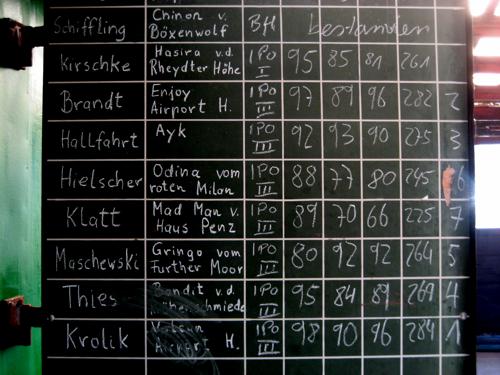 Schiffling Chinon v. Böxenwolf BH bestanden
Kirschke Hasira v.d. Rheydter Höhe IPO I 95 85 81 261
Brandt Enjoy Airport H. IPO III 97 89 96 282 2
Hallfahrt Ayk IPO III 92 93 90 275 3
Hielscher Odina vom roten Milan IPO III 88 77 80 245 6
Klatt Mad Man v. Haus Penz IPO III 89 70 66 225 7
Maschewski Gringo vom Further Moor IPO III 80 92 92 264 5
Thies Bandit v.d. IPO III 95 84 89 268 4
Krolik Vulcan Airport H. IPO III 98 90 96 284 1